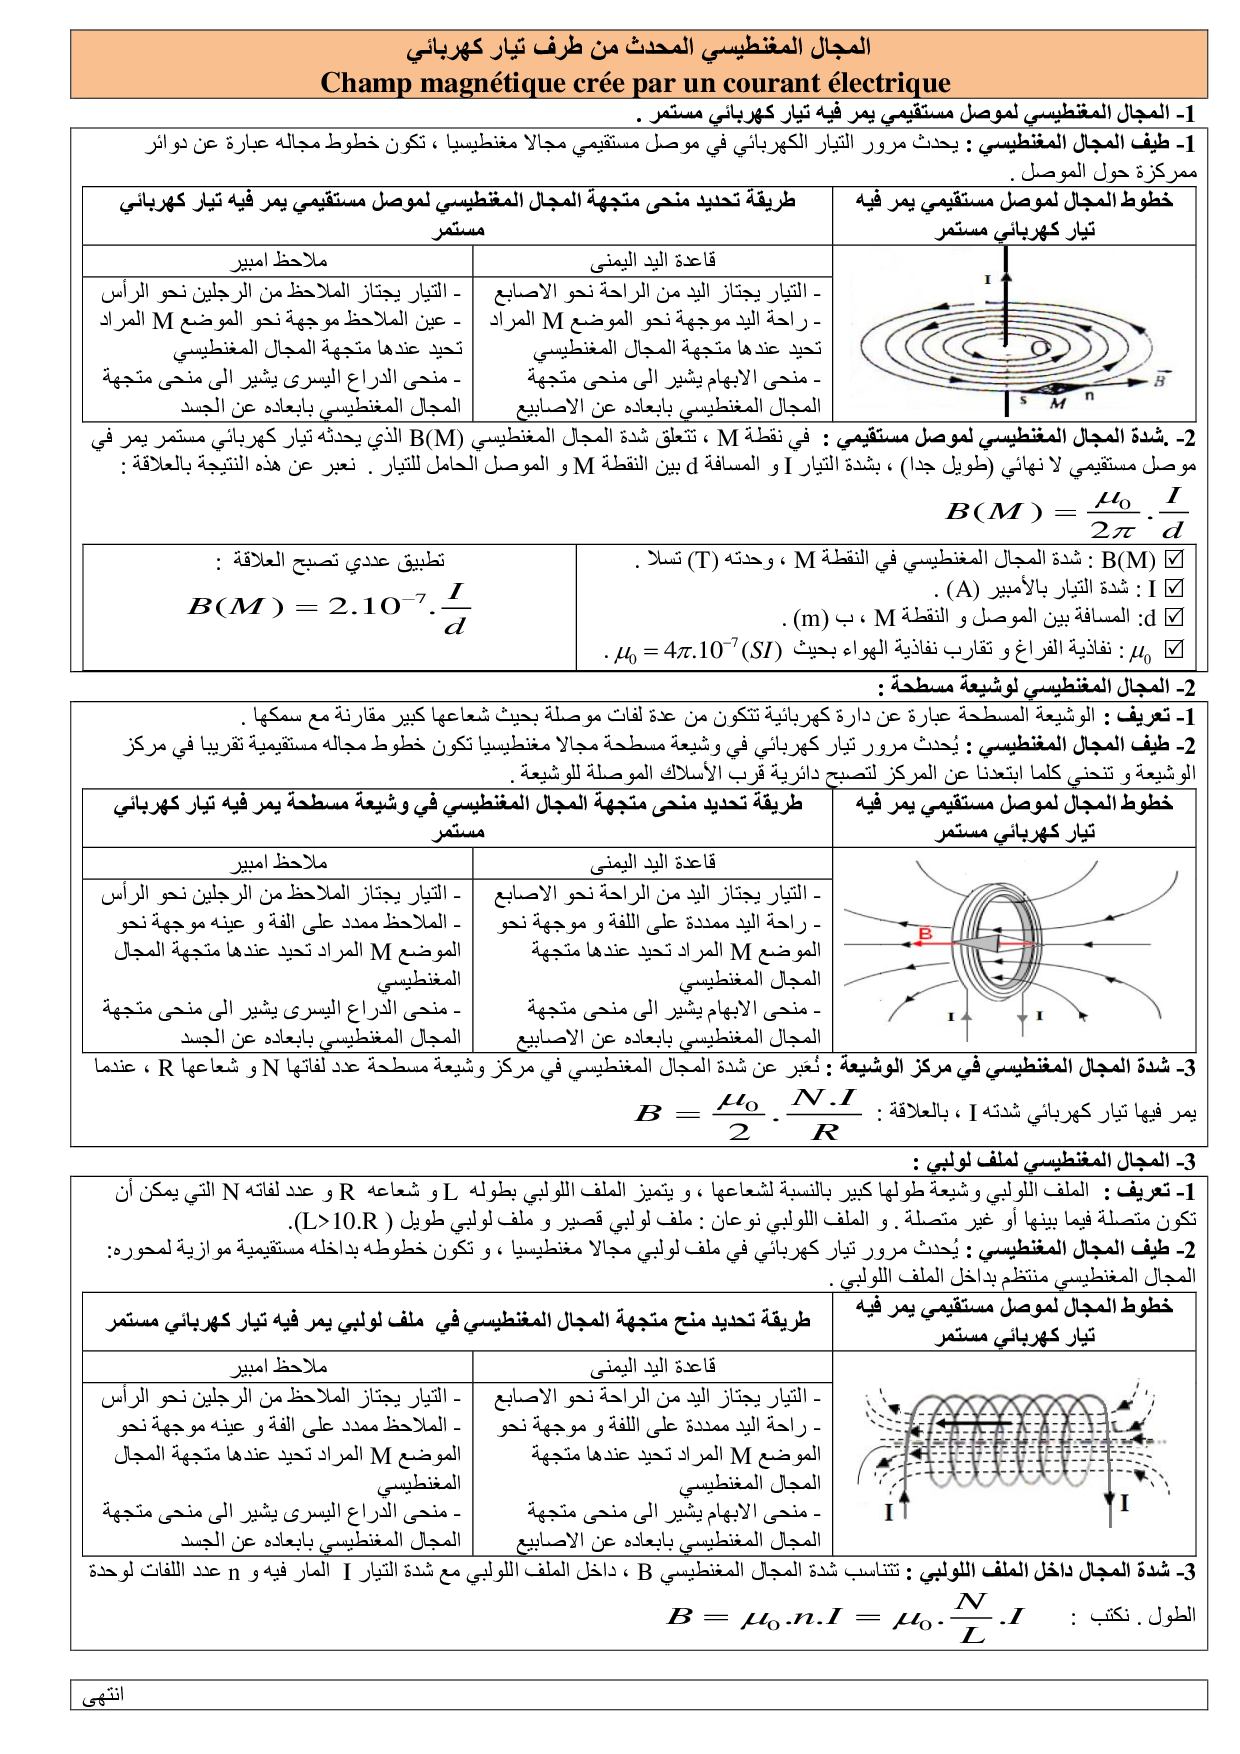 المجال المغنطيسي المحدث من طرف تيار كهربائي
Champ magnétique crée par un courant électrique
1- المجال المغنطيسي لموصل مستقيمي يمر فيه تيار كهربائي مستمر .
1- طيف المجال المغنطيسي : يحدث مرور التيار الكهربائي في موصل مستقيمي مجالا مغنطيسيا ، تكون خطوط مجاله عبارة عن دوائر
ممركزة حول الموصل .
خطوط المجال لموصل مستقيمي يمر فيه
تيار كهربائي مستمر
طريقة تحديد منحى متجهة المجال المغنطيسي لموصل مستقيمي يمر فيه تيار كهربائي
مستمر
قاعدة اليد اليمنى
ملاحظ امبير
I
B
s
M
n
- التيار يجتاز اليد من الراحة نحو الاصابع
- راحة اليد موجهة نحو الموضع M المراد
تحيد عندها متجهة المجال المغنطيسي
- منحى الابهام يشير الى منحى متجهة
المجال المغنطيسي بابعاده عن الاصابيع
- التيار يجتاز الملاحظ من الرجلين نحو الرأس
- عين الملاحظ موجهة نحو الموضع M المراد
تحيد عندها متجهة المجال المغنطيسي
- منحى الدراع اليسرى يشير الى منحى متجهة
المجال المغنطيسي بابعاده عن الجسد
2- .شدة المجال المغنطيسي لموصل مستقيمي : في نقطة M ، تتعلق شدة المجال المغنطيسي B(M) الذي يحدثه تيار كهربائي مستمر يمر في
موصل مستقيمي لا نهائي (طويل جدا) ، بشدة التيار I و المسافة d بين النقطة M و الموصل الحامل للتيار . نعبر عن هذه النتيجة بالعلاقة :
B(M) = μ0/2π . I/d
☑ B(M) : شدة المجال المغنطيسي في النقطة M ، وحدته (T) تسلا .
☑ I : شدة التيار بالأمبير (A) .
☑ d: المسافة بين الموصل و النقطة M ، ب (m) .
☑ μ0 : نفاذية الفراغ و تقارب نفاذية الهواء بحيث μ0 = 4π.10⁻⁷(SI) .
تطبيق عددي تصبح العلاقة :
B(M) = 2.10⁻⁷. I/d
2- المجال المغنطيسي لوشيعة مسطحة :
1- تعريف : الوشيعة المسطحة عبارة عن دارة كهربائية تتكون من عدة لفات موصلة بحيث شعاعها كبير مقارنة مع سمكها .
2- طيف المجال المغنطيسي : يُحدث مرور تيار كهربائي في وشيعة مسطحة مجالا مغنطيسيا تكون خطوط مجاله مستقيمية تقريبا في مركز
الوشيعة و تنحني كلما ابتعدنا عن المركز لتصبح دائرية قرب الأسلاك الموصلة للوشيعة .
خطوط المجال لموصل مستقيمي يمر فيه
تيار كهربائي مستمر
طريقة تحديد منحى متجهة المجال المغنطيسي في وشيعة مسطحة يمر فيه تيار كهربائي
مستمر
قاعدة اليد اليمنى
ملاحظ امبير
B
I
I
- التيار يجتاز اليد من الراحة نحو الاصابع
- راحة اليد ممددة على اللفة و موجهة نحو
الموضع M المراد تحيد عندها متجهة
المجال المغنطيسي
- منحى الابهام يشير الى منحى متجهة
المجال المغنطيسي بابعاده عن الاصابيع
- التيار يجتاز الملاحظ من الرجلين نحو الرأس
- الملاحظ ممدد على الفة و عينه موجهة نحو
الموضع M المراد تحيد عندها متجهة المجال
المغنطيسي
- منحى الدراع اليسرى يشير الى منحى متجهة
المجال المغنطيسي بابعاده عن الجسد
3- شدة المجال المغنطيسي في مركز الوشيعة : نُعَبر عن شدة المجال المغنطيسي في مركز وشيعة مسطحة عدد لفاتها N و شعاعها R ، عندما
يمر فيها تيار كهربائي شدته I ، بالعلاقة : B = μ0/2 . N.I/R
3- المجال المغنطيسي لملف لولبي :
1- تعريف : الملف اللولبي وشيعة طولها كبير بالنسبة لشعاعها ، و يتميز الملف اللولبي بطوله L و شعاعه R و عدد لفاته N التي يمكن أن
تكون متصلة فيما بينها أو غير متصلة . و الملف اللولبي نوعان : ملف لولبي قصير و ملف لولبي طويل ( L>10.R).
2- طيف المجال المغنطيسي : يُحدث مرور تيار كهربائي في ملف لولبي مجالا مغنطيسيا ، و تكون خطوطه بداخله مستقيمية موازية لمحوره:
المجال المغنطيسي منتظم بداخل الملف اللولبي .
خطوط المجال لموصل مستقيمي يمر فيه
تيار كهربائي مستمر
طريقة تحديد منح متجهة المجال المغنطيسي في ملف لولبي يمر فيه تيار كهربائي مستمر
قاعدة اليد اليمنى
ملاحظ امبير
I
I
- التيار يجتاز اليد من الراحة نحو الاصابع
- راحة اليد ممددة على اللفة و موجهة نحو
الموضع M المراد تحيد عندها متجهة
المجال المغنطيسي
- منحى الابهام يشير الى منحى متجهة
المجال المغنطيسي بابعاده عن الاصابيع
- التيار يجتاز الملاحظ من الرجلين نحو الرأس
- الملاحظ ممدد على الفة و عينه موجهة نحو
الموضع M المراد تحيد عندها متجهة المجال
المغنطيسي
- منحى الدراع اليسرى يشير الى منحى متجهة
المجال المغنطيسي بابعاده عن الجسد
3- شدة المجال داخل الملف اللولبي : تتناسب شدة المجال المغنطيسي B ، داخل الملف اللولبي مع شدة التيار I المار فيه و n عدد اللفات لوحدة
الطول . نكتب : B = μ0.n.I = μ0. N/L .I
انتهى